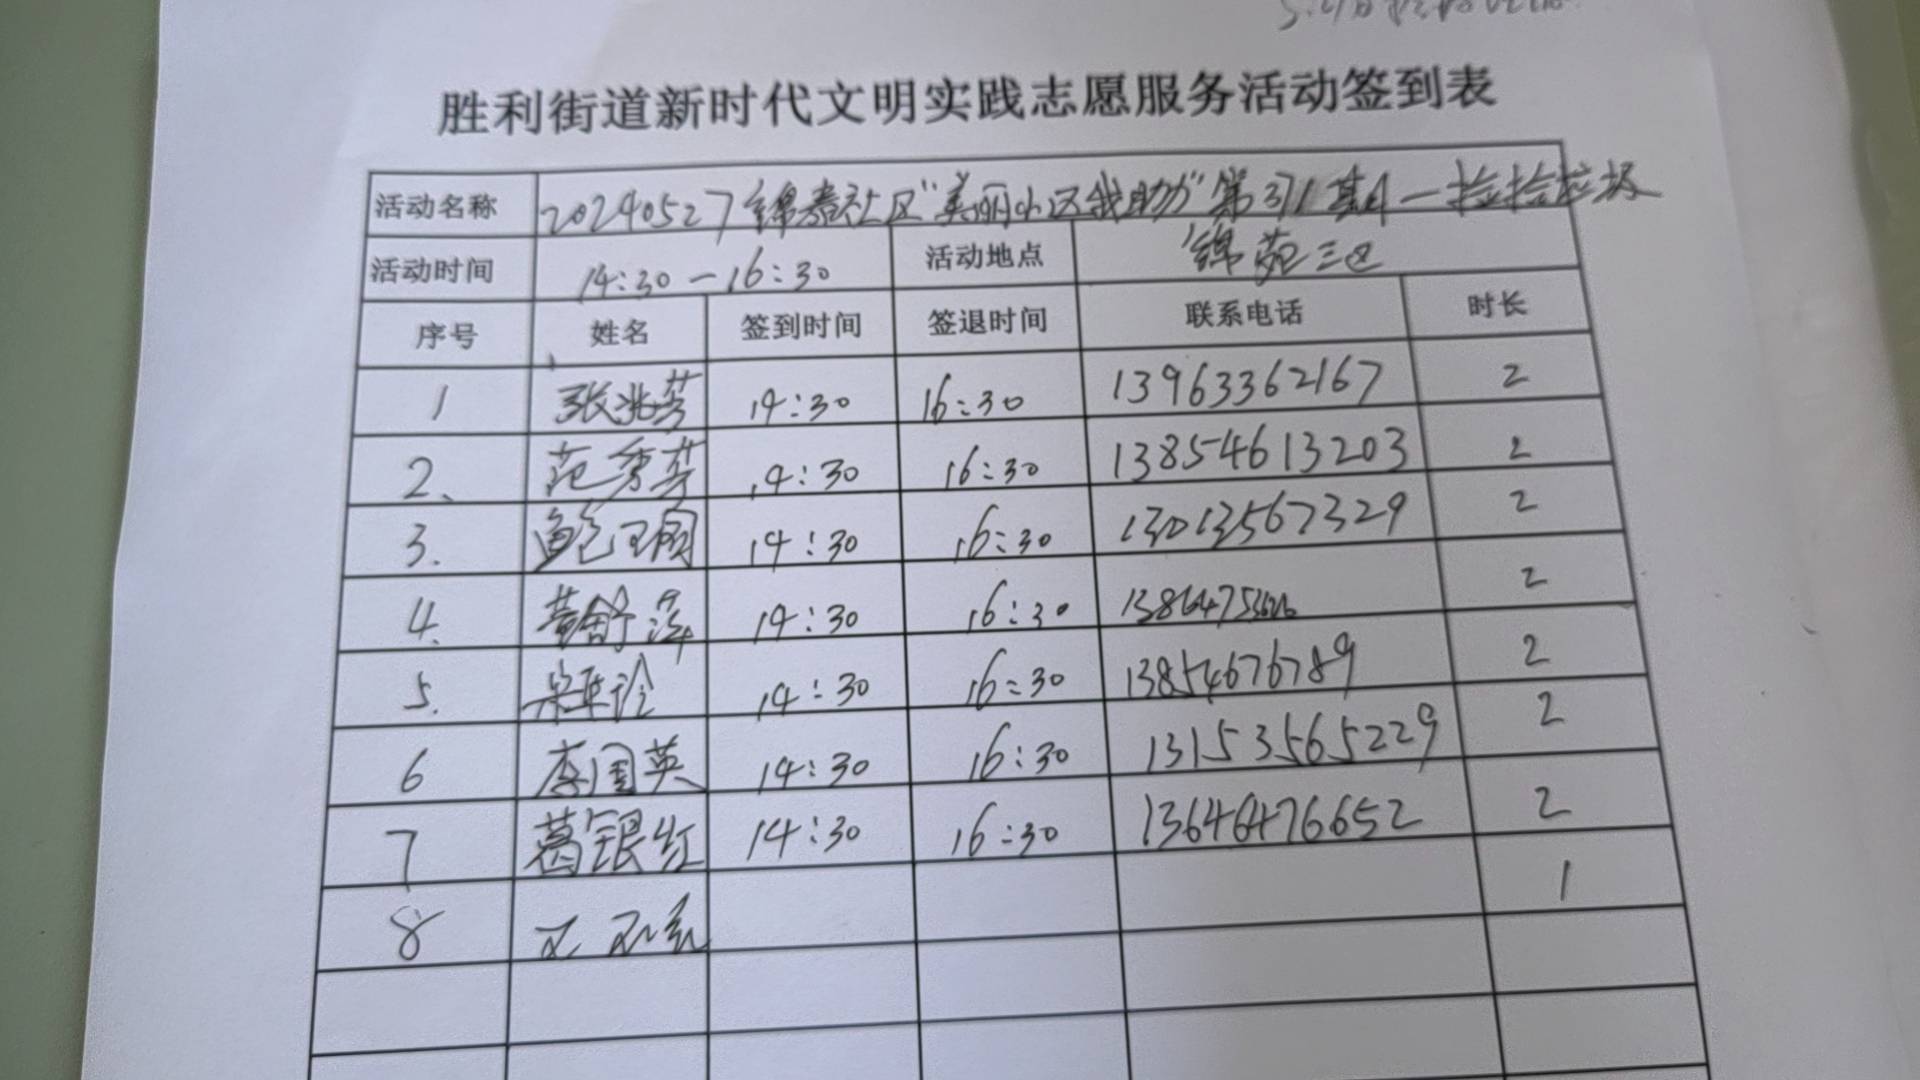 胜利街道新时代文明实践志愿服务活动签到表
活动名称 20240527锦嘉社区"美丽小区我助力"第371基A一捡拾垃圾
活动时间 14:30—16:30 活动地点 锦苑三区
序号 姓名 签到时间 签退时间 联系电话 时长
1 张兆芳 14:30 16:30 13963362167 2
2、 范秀芳 14:30 16:30 13854613203 2
3. 鲍玉阁 14:30 16:30 13013567329 2
4. 黄舒萍 14:30 16:30 2
5. 14:30 16:30 13854676789 2
6 李国英 14:30 16:30 13153565229 2
7 葛银红 14:30 16:30 13646476652 2
8 1